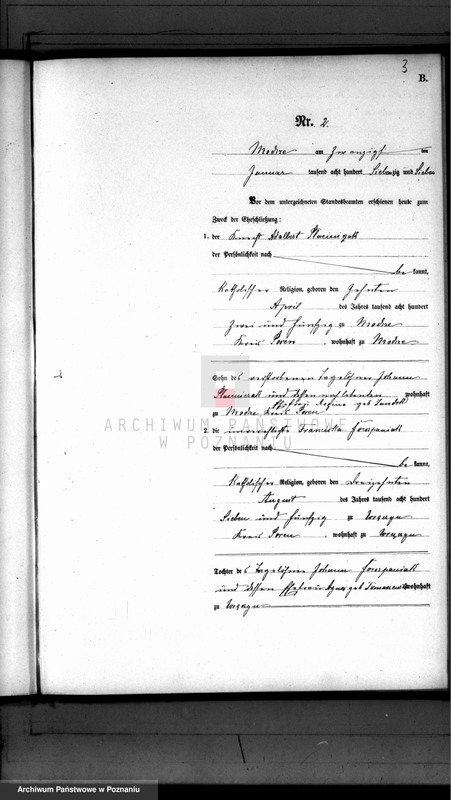 3
B.
Nr. 2.
Modrze am Zwanzigsten
Januar tausend acht hundert Siebenzig und Sieben
Vor dem unterzeichneten Standesbeamten erschienen heute zum
Zweck der Eheschließung:
1. der Knecht Adalbert
der Persönlichkeit nach
be kannt,
Katholischer Religion, geboren den Zehnten
April des Jahres tausend acht hundert
Zwei und Fünfzig zu Modrze
Kreis Posen, wohnhaft zu Modrze
Sohn des verstorbenen Tagelöhner Johann
und dessen noch lebenden wohnhaft
Ehefrau Regina geb
zu Modrze Kreis Posen
ARCHIWUM PAŃSTWOWE
W POZNANIU
2. die unverehelichte Franciska
der Persönlichkeit nach
be kannt,
Katholischer Religion, geboren den Dreizehnten
August des Jahres tausend acht hundert
Sieben und Fünfzig zu
Kreis Posen, wohnhaft zu
Tochter des Tagelöhner Johann
und dessen Ehefrau Agnes geb wohnhaft
zu
Archiwum Państwowe w Poznaniu